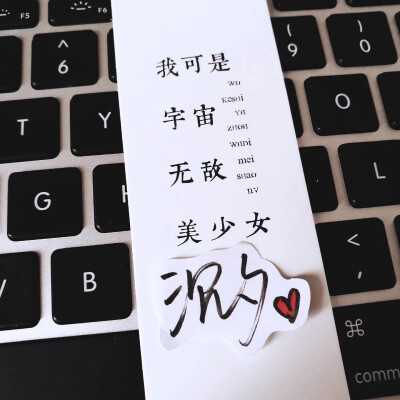 F5
F6
^
6
(
9
)
0
我可是
wo
keshi
宇宙
yu
zhou
T
Y
wudi
无敌
mei
shao
nv
G
L
美少女
<
,
B
⌘
comm